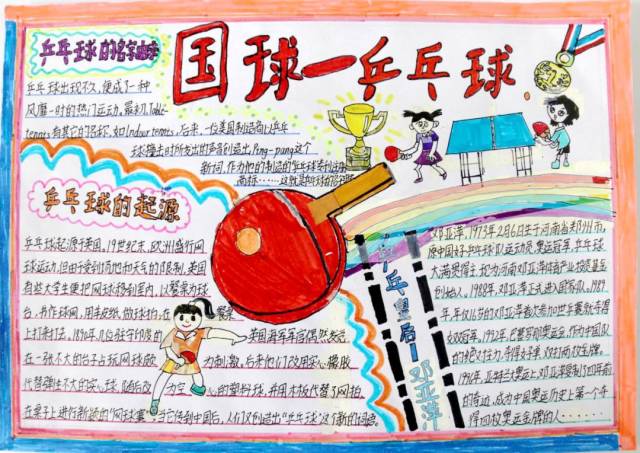 国球一乒乓球
乒乓球的名字由来
乒乓球出现不久,便成了一种
风靡一时的热门运动。最初,Table
tennis 有其它的名称,如Indour tennis,后来,一位美国制造商以乒乓
球撞击时所发出的声音创造出Ping-pang这个
新词,作为他的制造的"乒乓球"专利注册
商标
乒乓球的起源
乒乓球起源于英国。19世纪末,欧洲盛行网
球运动,但由于受到场地和天气的限制,英国
有些大学生便把网球移到室内,以餐桌为球
台,书作球网,用羊皮纸做球拍,在餐桌
上打来打去。1890年,几位驻守印度的英国海军军官偶然发觉
在一张不大的台子上玩网球颇为刺激。后来他们改用实心橡胶
代替弹性不大的实心球,随后改为空心的塑料球,并用木板代替了网拍,
在桌子上进行新颖的"网球赛"。当它传到中国后,人们又创造出"乒乓球"这个新的词语。
乒乓皇后—邓亚萍
邓亚萍,1973年2月6日生于河南省郑州市,
原中国女子乒乓球队运动员,奥运冠军,乒乓球
大满贯得主,现为河南邓亚萍体育产业投资基金
创始人。1988年,邓亚萍正式进入国家队,1989
年,年仅16岁的邓亚萍首次参加世乒赛就夺得
女双冠军。1992年,巴塞罗那奥运会,作为中国队
的绝对主力,夺得女子单、双打两枚金牌。
1996年,亚特兰大奥运上,邓亚萍复制了四年前
的奇迹,成为中国奥运历史上第一个夺
得四枚奥运金牌的人